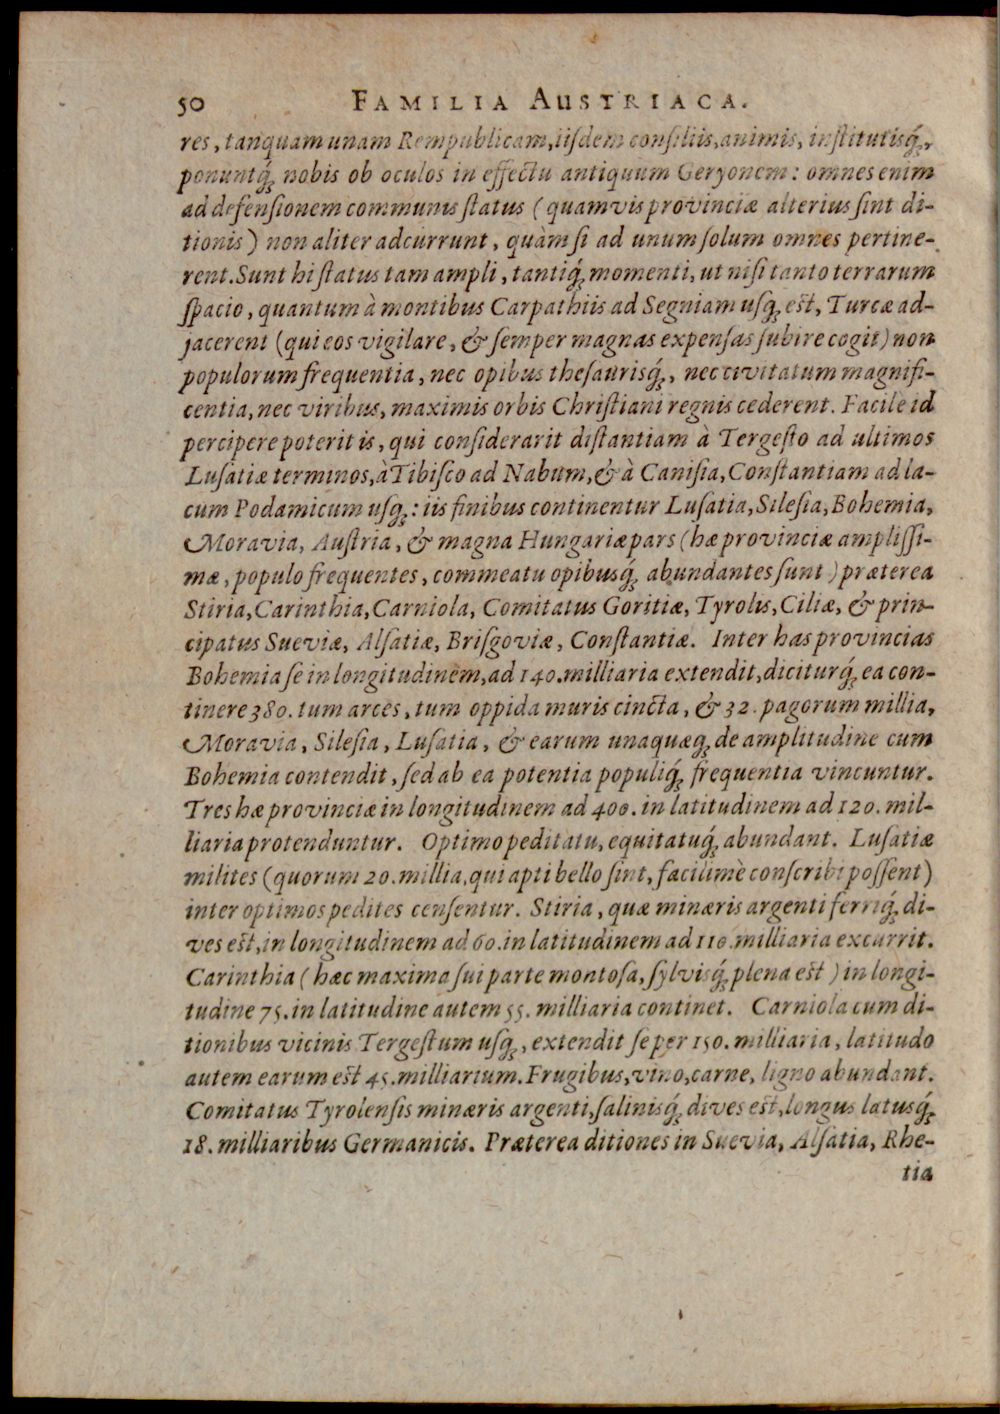 50 FAMILIA AUSTRIACA.
res, tanquam unam Rempublicam, iisdem consiliis, animis, institutisq́;,
ponuntq́; nobis ob oculos in effectu antiquum Geryonem: omnes enim
ad defensionem communis status (quamvis provinciæ alterius sint di-
tionis) non aliter adcurrunt, quàm si ad unum solum omnes pertine-
rent. Sunt hi status tam ampli, tantiq́; momenti, ut nisi tanto terrarum
spacio, quantum à montibus Carpathiis ad Segniam usq; est, Turcæ ad-
jacerent (qui eos vigilare, & semper magnas expensas subire cogit) non
populorum frequentia, nec opibus thesaurisq́;, nec civitatum magnifi-
centia, nec viribus, maximis orbis Christiani regnis cederent. Facile id
percipere poterit is, qui considerarit distantiam à Tergesto ad ultimos
Lusatiæ terminos, à Tibisco ad Nabum, & à Canisia, Constantiam ad la-
cum Podamicum usq;: iis finibus continentur Lusatia, Silesia, Bohemia,
Moravia, Austria, & magna Hungariæ pars (hæ provinciæ amplissi-
mæ, populo frequentes, commeatu opibusq́; abundantes sunt) præterea
Stiria, Carinthia, Carniola, Comitatus Goritiæ, Tyrolis, Ciliæ, & prin-
cipatus Sueviæ, Alsatiæ, Brisgoviæ, Constantiæ. Inter has provincias
Bohemia se in longitudinem, ad 140. milliaria extendit, diciturq́; ea con-
tinere 380. tum arces, tum oppida muris cincta, & 32. pagorum millia,
Moravia, Silesia, Lusatia, & earum unaquæq; de amplitudine cum
Bohemia contendit, sed ab ea potentia populiq́; frequentia vincuntur.
Tres hæ provinciæ in longitudinem ad 400. in latitudinem ad 120. mil-
liaria protenduntur. Optimo peditatu, equitatuq́; abundant. Lusatiæ
milites (quorum 20. millia, qui apti bello sint, facilimè conscribi possent)
inter optimos pedites censentur. Stiria, quæ minæris argenti ferriq́; di-
ves est, in longitudinem ad 60. in latitudinem ad 110. milliaria excurrit.
Carinthia (hæc maxima sui parte montosa, sylvisq́; plena est) in longi-
tudine 75. in latitudine autem 55. milliaria continet. Carniola cum di-
tionibus vicinis Tergestum usq;, extendit se per 150. milliaria, latitudo
autem earum est 45. milliarium. Frugibus, vino, carne, ligno abundant.
Comitatus Tyrolensis minæris argenti, salinisq́; dives est, longus latusq́;
18. milliaribus Germanicis. Præterea ditiones in Suevia, Alsatia, Rhe-
tia